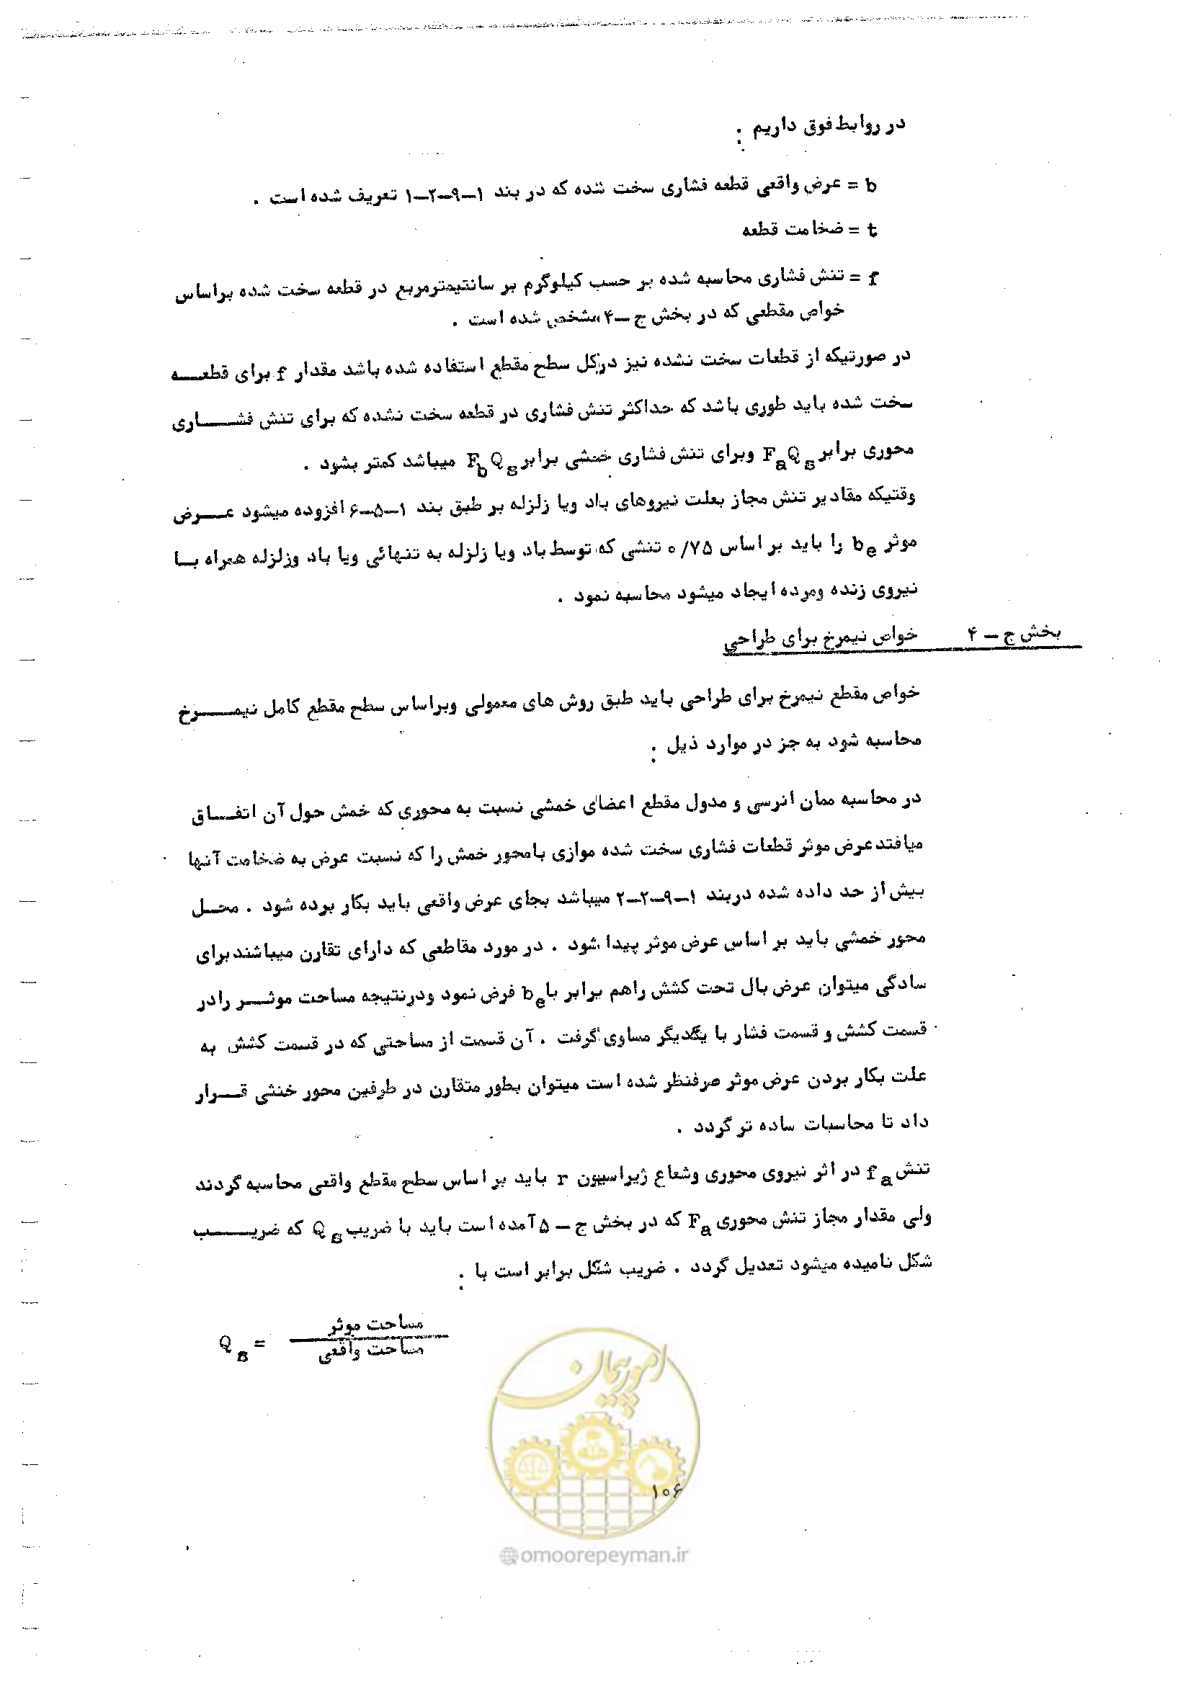 در روابط فوق داریم :
b = عرض واقعی قطعه فشاری سخت شده که در بند ۱-۹-۲-۱ تعریف شده است .
t = ضخامت قطعه
f = تنش فشاری محاسبه شده بر حسب کیلوگرم بر سانتیمترمربع در قطعه سخت شده براساس
خواص مقطعی که در بخش ج -۴ مشخص شده است .
در صورتیکه از قطعات سخت نشده نیز درکل سطح مقطع استفاده شده باشد مقدار f برای قطعه
سخت شده باید طوری باشد که حداکثر تنش فشاری در قطعه سخت نشده که برای تنش فشاری
محوری برابر FaQs وبرای تنش فشاری خمشی برابر FbQs میباشد کمتر بشود .
وقتیکه مقادیر تنش مجاز بعلت نیروهای باد ویا زلزله بر طبق بند ۱-۵-۶ افزوده میشود عرض
موثر be را باید بر اساس ۰/۷۵ تنشی که توسط باد ویا زلزله به تنهائی ویا باد وزلزله همراه با
نیروی زنده ومرده ایجاد میشود محاسبه نمود .
بخش ج - ۴ خواص نیمرخ برای طراحی
خواص مقطع نیمرخ برای طراحی باید طبق روش های معمولی وبراساس سطح مقطع کامل نیمرخ
محاسبه شود به جز در موارد ذیل :
در محاسبه ممان انرسی و مدول مقطع اعضای خمشی نسبت به محوری که خمش حول آن اتفاق
میافتد عرض موثر قطعات فشاری سخت شده موازی بامحور خمش را که نسبت عرض به ضخامت آنها
بیش از حد داده شده دربند ۱-۹-۲-۲ میباشد بجای عرض واقعی باید بکار برده شود . محل
محور خمشی باید بر اساس عرض موثر پیدا شود . در مورد مقاطعی که دارای تقارن میباشند برای
سادگی میتوان عرض بال تحت کشش راهم برابر با be فرض نمود ودرنتیجه مساحت موثر رادر
قسمت کشش و قسمت فشار با یکدیگر مساوی گرفت . آن قسمت از مساحتی که در قسمت کشش به
علت بکار بردن عرض موثر صرفنظر شده است میتوان بطور متقارن در طرفین محور خنثی قرار
داد تا محاسبات ساده تر گردد .
تنش fa در اثر نیروی محوری وشعاع ژیراسیون r باید بر اساس سطح مقطع واقعی محاسبه گردند
ولی مقدار مجاز تنش محوری Fa که در بخش ج - ۵ آمده است باید با ضریب Qs که ضریب
شکل نامیده میشود تعدیل گردد . ضریب شکل برابر است با :
Qs = مساحت موثر
مساحت واقعی
امور پیمان
۱۰۶
@omoorepeyman.ir